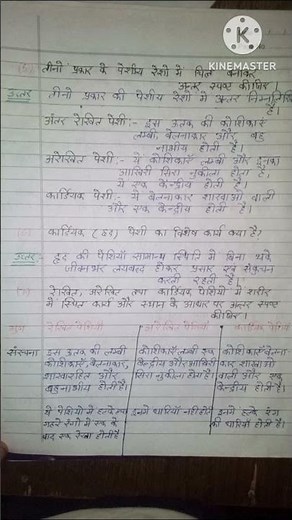 KINEMASTER
तीनो प्रकार के पेशीय रेशो में चित्र बनाकर
अन्तर स्पष्ट कीजिए।
उत्तर तीनो प्रकार की पेशीय रेशो में अन्तर निम्नलिखित
है।
पेशी:- इस ऊतक की कोशिकाएँ
लम्बी, बेलनाकार और बहु
नाभीय होती है।
अरेखित पेशी:- ये कोशिकाएँ लम्बी और इनका
आखिरी सिरा नुकीला होता है,
ये एक केन्द्रीय होती है।
कार्डियक पेशी:- ये बेलनाकार शाखाओं वाली
और एक केन्द्रीय होती है।
कार्डियक (हृद) पेशी का विशेष कार्य क्या है?
उत्तर:- हृद की पेशियाँ सामान्य स्थिति में बिना थके
जीवनभर लयबद्ध होकर प्रसार एवं संकुचन
करती रहती है।
रेखित, अरेखित तथा कार्डियक पेशियों में शरीर
में स्थित कार्य और स्थान के आधार पर अन्तर स्पष्ट
कीजिए।
रेखित पेशियाँ अरेखित पेशियाँ
संरचना इस ऊतक की लम्बी कोशिकाएँ लम्बी एक कोशिकाएँ
कोशिकाएँ, बेलनाकार, केन्द्रीय और आखिरी कार शाखाओं
शाखारहित और सिरा नुकीला होता है। वाली और एक
बहुनाभीय होती है। केन्द्रीय होती है।
ये पेशियों में हल्के एवं इनमे धारियाँ नही होती इनमे हल्के रंग
गहरे रंगो में एक के की धारियाँ होती है।
बाद एक रेखा होती है